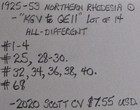 1925-53 NORTHERN RHODESIA
"KGV to QEII" LOT OF 14
ALL-DIFFERENT
#1-4
#25, 28-30.
#32, 34, 36, 38, 40.
#68, 69.
-2020 SCOTT CV $7.55 USD